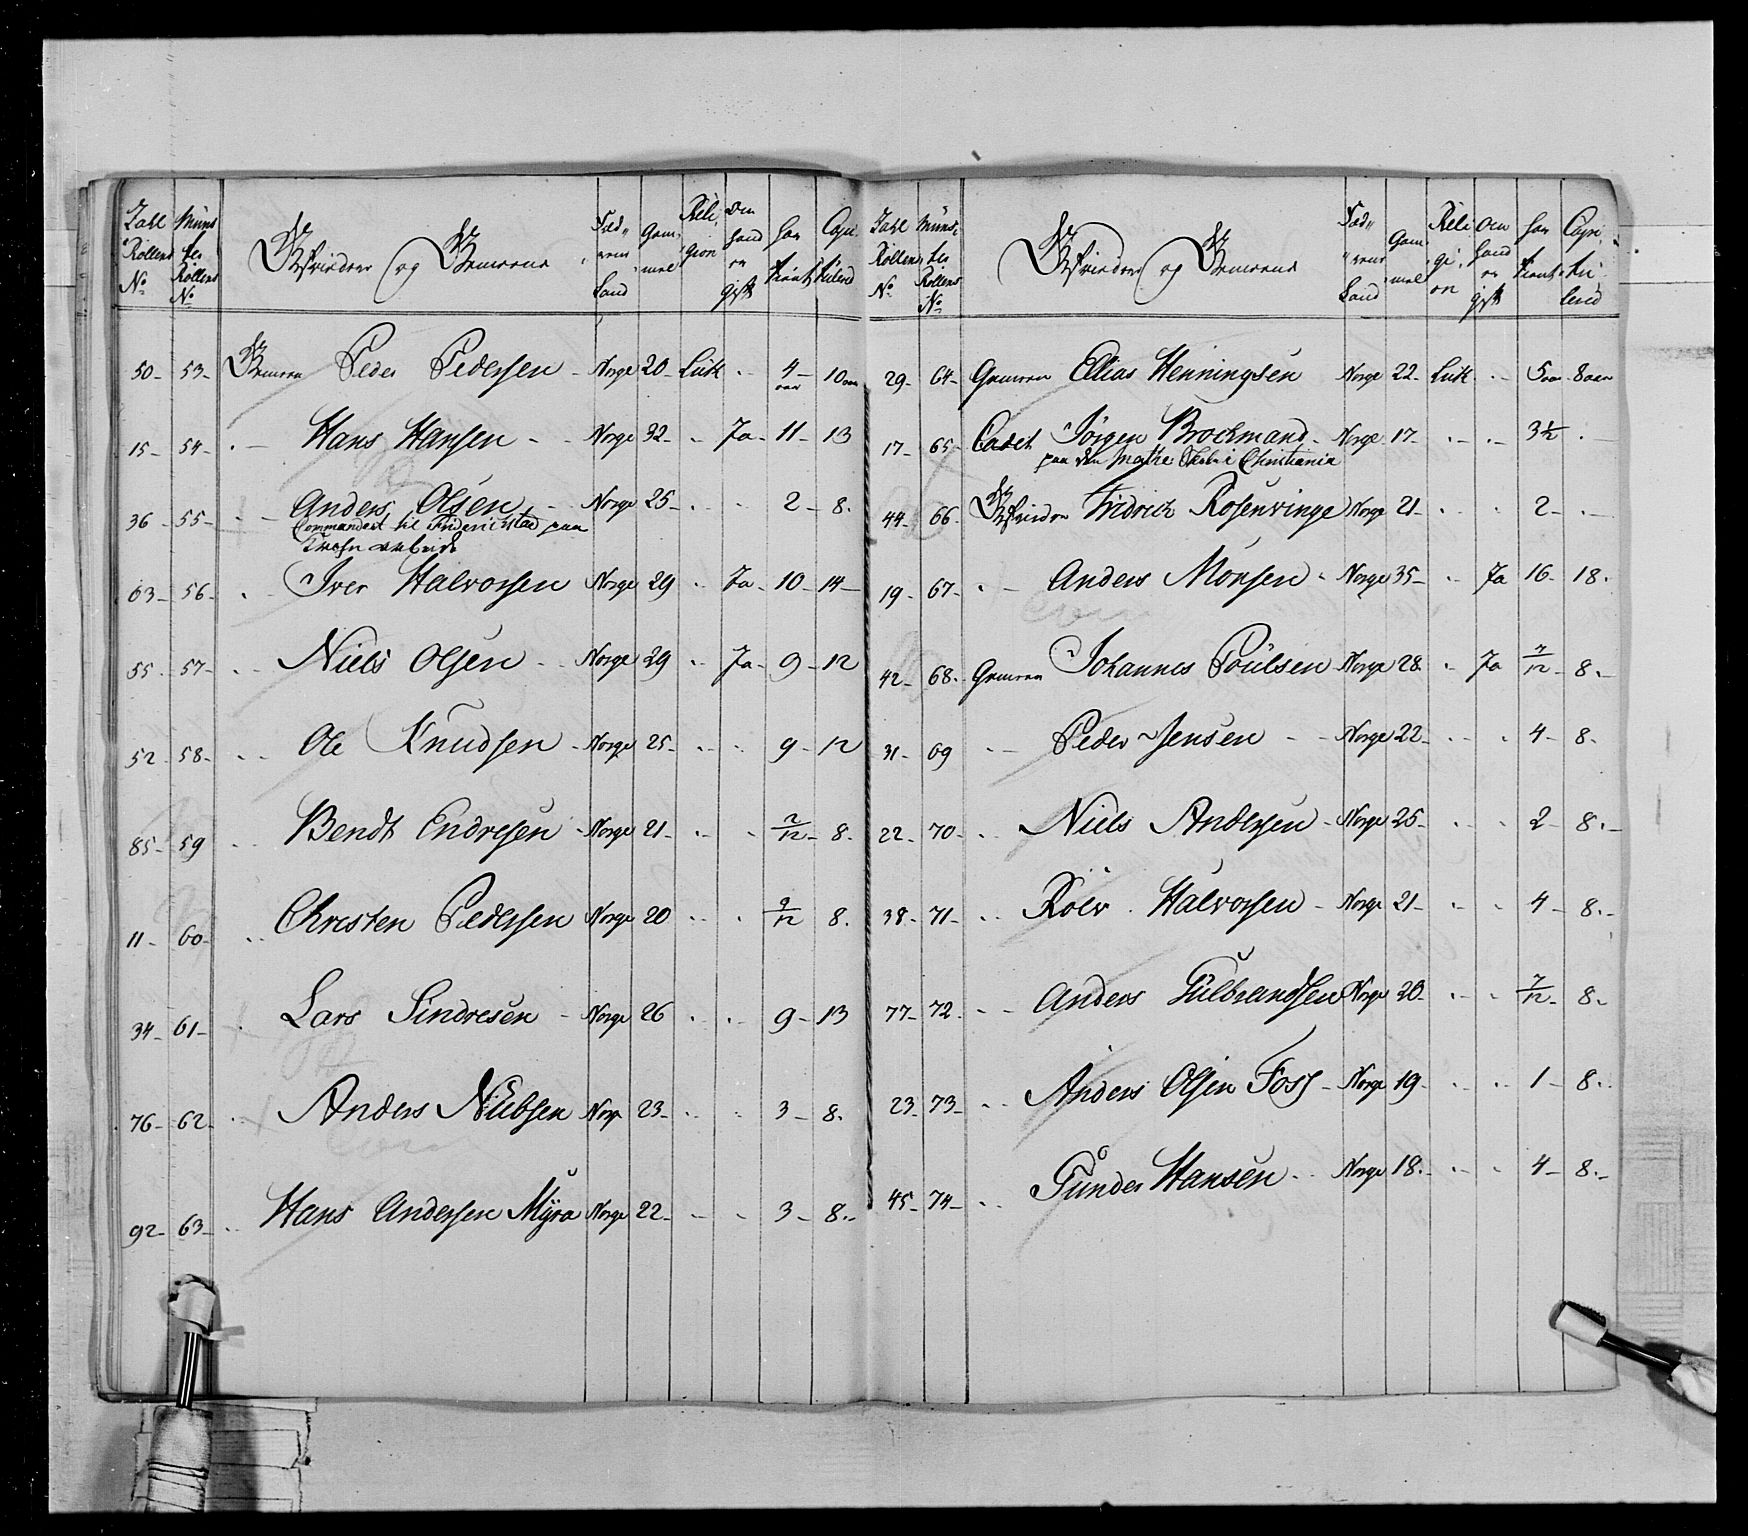 Zahl Rollens No | Münster Rollens No | Gefrieder og Gemeene | Fæderne Land | Gammel | Religion | Om hand er gift | har tient | Capitulerd
50 - 53 - Gemeen Peder Pedersen - Norge 20 Luth - - 4 aar 10 aar
15 - 54 - - Hans Hansen - - Norge 32 - - Ja - 11 - 13
36 - 55 - - Anders Olsen - Norge 25 - - - 2 - 8.
Commandert til Friderichstad paa
arbeide
63 - 56 - - Iver Halvorsen Norge 29 - Ja - 10 - 14 -
55 - 57 - - Niels Olsen - - Norge 29 - Ja - 9 - 12
52 - 58 - - Ole Knudsen - Norge 25 - - - 9 - 12
85 - 59 - Bendt Endresen - Norge 21 - - - 2/12 - 8.
11 - 60 - - Christen Pedersen Norge 20 - - 9/12 8.
34 - 61 - - Lars Sindresen - Norge 26 - - 9 - 13
76 - 62 - - Anders Nielsen Norge 23 - - - 3 - 8.
92 - 63 - - Hans Andersen Myra Norge 22 - - - 3 - 8. -
Zahl Rollens No | Münster Rollens No | Gefrieder og Gemeene | Fæderne Land | Gammel | Religion | Om hand er gift | har tient | Capitulerd
29 - 64 - Gemeen Ellias Henningsen Norge 22 - Luth - - 5 aar 8 aar
17 - 65 - Cadet Jørgen Brochmand - Norge 17 - - - 3 1/2 - -
paa den Mathe Skole i Christiania
44 - 66 - Gefrieder Fridrich Rosenvinge Norge 21 - - - 2 - -
19 - 67 - - Anders Monsen - Norge 35 - - Ja 16 - 18.
42 - 68 - Gemeen Johannes Poulsen - Norge 28 - Ja 7/12 - 8. -
31 - 69 - - Peder Jensen - - Norge 22 - - - 4 - 8.
22 - 70 - - Niels Andersen - Norge 25 - - - 2 - 8. -
38 - 71 - - Rolv Halvorsen - Norge 21 - - - 4 - 8. -
77 - 72 - - Anders Gulbrandsen Norge 20 - - - 7/12 - 8. -
23 - 73 - - Anders Olsen Foss - Norge 19 - - - 1 - 8. -
45 - 74 - - Gunder Hansen - - Norge 18 - - - 4 - 8. -